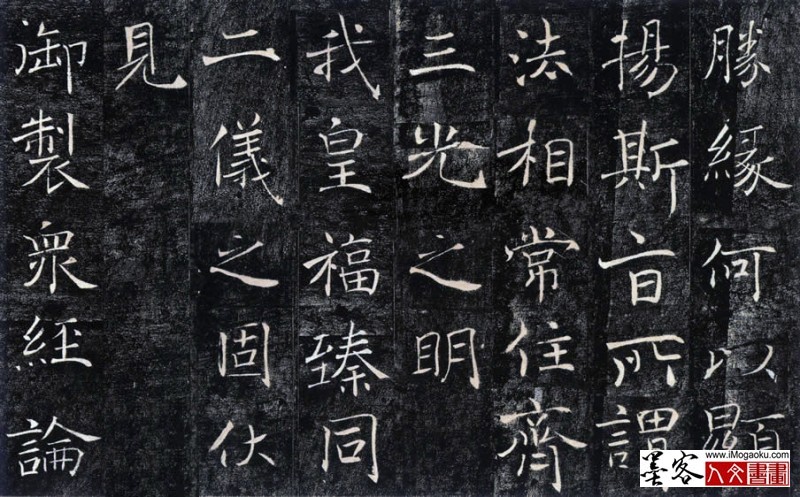 勝緣何以顯
揚斯旨所謂
法相常住齊
三光之明
我皇福臻同
二儀之固伏
見
御製衆經論
墨客
www.iMogaoku.com
人文書畫